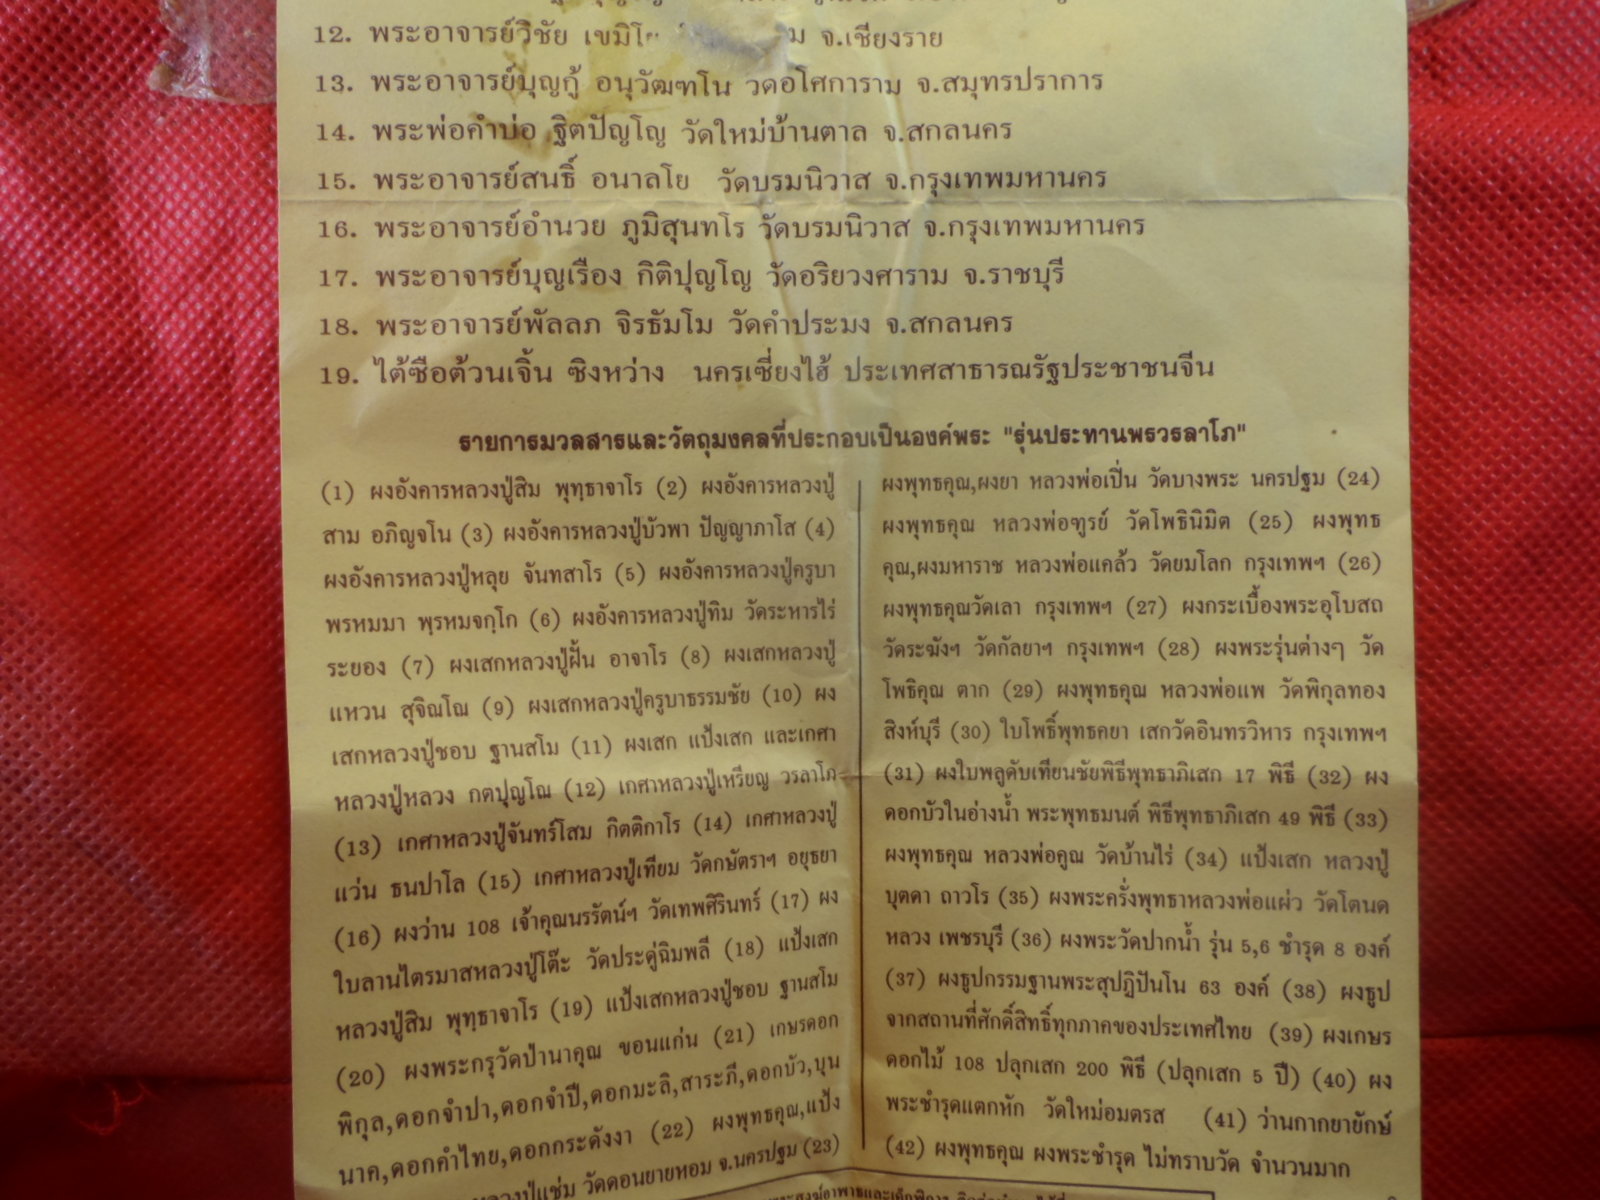 12. พระอาจารย์วิชัย เขมิโย จ.เชียงราย
13. พระอาจารย์บุญกู้ อนุวัฒฑโน วัดอโศการาม จ.สมุทรปราการ
14. พระพ่อคำบ่อ ฐิตปัญโญ วัดใหม่บ้านตาล จ.สกลนคร
15. พระอาจารย์สนธิ์ อนาลโย วัดบรมนิวาส จ.กรุงเทพมหานคร
16. พระอาจารย์อำนวย ภูมิสุนทโร วัดบรมนิวาส จ.กรุงเทพมหานคร
17. พระอาจารย์บุญเรือง กิติปุญโญ วัดอริยวงศาราม จ.ราชบุรี
18. พระอาจารย์พัลลภ จิรธัมโม วัดคำประมง จ.สกลนคร
19. ไต้ซือต้วนเจิ้น ซิงหว่าง นครเซี่ยงไฮ้ ประเทศสาธารณรัฐประชาชนจีน
รายการมวลสารและวัตถุมงคลที่ประกอบเป็นองค์พระ "รุ่นประทานพรวรลาโภ"
(1) ผงอังคารหลวงปู่สิม พุทฺธาจาโร (2) ผงอังคารหลวงปู่
สาม อภิญจโน (3) ผงอังคารหลวงปู่บัวพา ปัญญาภาโส (4)
ผงอังคารหลวงปู่หลุย จันทสาโร (5) ผงอังคารหลวงปู่ครูบา
พรหมมา พฺรหมจกฺโก (6) ผงอังคารหลวงปู่ทิม วัดระหารไร่
ระยอง (7) ผงเสกหลวงปู่ฝั้น อาจาโร (8) ผงเสกหลวงปู่
แหวน สุจิณโณ (9) ผงเสกหลวงปู่ครูบาธรรมชัย (10) ผง
เสกหลวงปู่ชอบ ฐานสโม (11) ผงเสก แป้งเสก และเกศา
หลวงปู่หลวง กตปุญโณ (12) เกศาหลวงปู่เหรียญ วรลาโภ
(13) เกศาหลวงปู่จันทร์โสม กิตติกาโร (14) เกศาหลวงปู่
แว่น ธนปาโล (15) เกศาหลวงปู่เทียม วัดกษัตราฯ อยุธยา
(16) ผงว่าน 108 เจ้าคุณนรรัตน์ฯ วัดเทพศิรินทร์ (17) ผง
ใบลานไตรมาสหลวงปู่โต๊ะ วัดประดู่ฉิมพลี (18) แป้งเสก
หลวงปู่สิม พุทฺธาจาโร (19) แป้งเสกหลวงปู่ชอบ ฐานสโม
(20) ผงพระกรุวัดป่านาคุณ ขอนแก่น (21) เกษรดอก
พิกุล,ดอกจำปา,ดอกจำปี,ดอกมะลิ,สาระภี,ดอกบัว,บุน
นาค,ดอกคำไทย,ดอกกระดังงา (22) ผงพุทธคุณ,แป้ง
หลวงปู่แช่ม วัดดอนยายหอม จ.นครปฐม (23)
ผงพุทธคุณ,ผงยา หลวงพ่อเปิ่น วัดบางพระ นครปฐม (24)
ผงพุทธคุณ หลวงพ่อฑูรย์ วัดโพธินิมิต (25) ผงพุทธ
คุณ,ผงมหาราช หลวงพ่อแคล้ว วัดยมโลก กรุงเทพฯ (26)
ผงพุทธคุณวัดเลา กรุงเทพฯ (27) ผงกระเบื้องพระอุโบสถ
วัดระฆังฯ วัดกัลยาฯ กรุงเทพฯ (28) ผงพระรุ่นต่างๆ วัด
โพธิคุณ ตาก (29) ผงพุทธคุณ หลวงพ่อแพ วัดพิกุลทอง
สิงห์บุรี (30) ใบโพธิ์พุทธคยา เสกวัดอินทรวิหาร กรุงเทพฯ
(31) ผงใบพลูดับเทียนชัยพิธีพุทธาภิเสก 17 พิธี (32) ผง
ดอกบัวในอ่างน้ำ พระพุทธมนต์ พิธีพุทธาภิเสก 49 พิธี (33)
ผงพุทธคุณ หลวงพ่อคูณ วัดบ้านไร่ (34) แป้งเสก หลวงปู่
บุตดา ถาวโร (35) ผงพระครั่งพุทธาหลวงพ่อแผ่ว วัดโตนด
หลวง เพชรบุรี (36) ผงพระวัดปากน้ำ รุ่น 5,6 ชำรุด 8 องค์
(37) ผงธูปกรรมฐานพระสุปฏิปันโน 63 องค์ (38) ผงธูป
จากสถานที่ศักดิ์สิทธิ์ทุกภาคของประเทศไทย (39) ผงเกษร
ดอกไม้ 108 ปลุกเสก 200 พิธี (ปลุกเสก 5 ปี) (40) ผง
พระชำรุดแตกหัก วัดใหม่อมตรส (41) ว่านกากยายักษ์
(42) ผงพุทธคุณ ผงพระชำรุด ไม่ทราบวัด จำนวนมาก